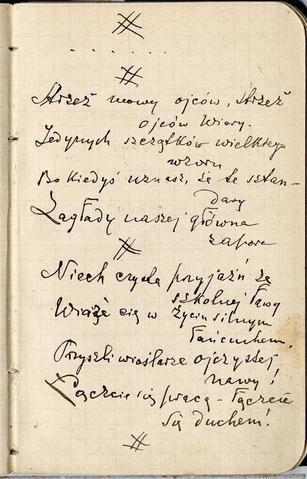 Strzeż mowy ojców, strzeż
ojców wiary.
Jedynych szczątków wielkiego
wzoru
Bo kiedyś uznasz, że te sztan-
dary
Zagłady naszej główna
zapora
Niech czysta przyjaźń ze
szkolnej ławy
Wiąże się w życiu silnym
łańcuchem,
Przyszli wioślarze ojczystej
nawy!
Łączcie się pracą – łączcie
się duchem!